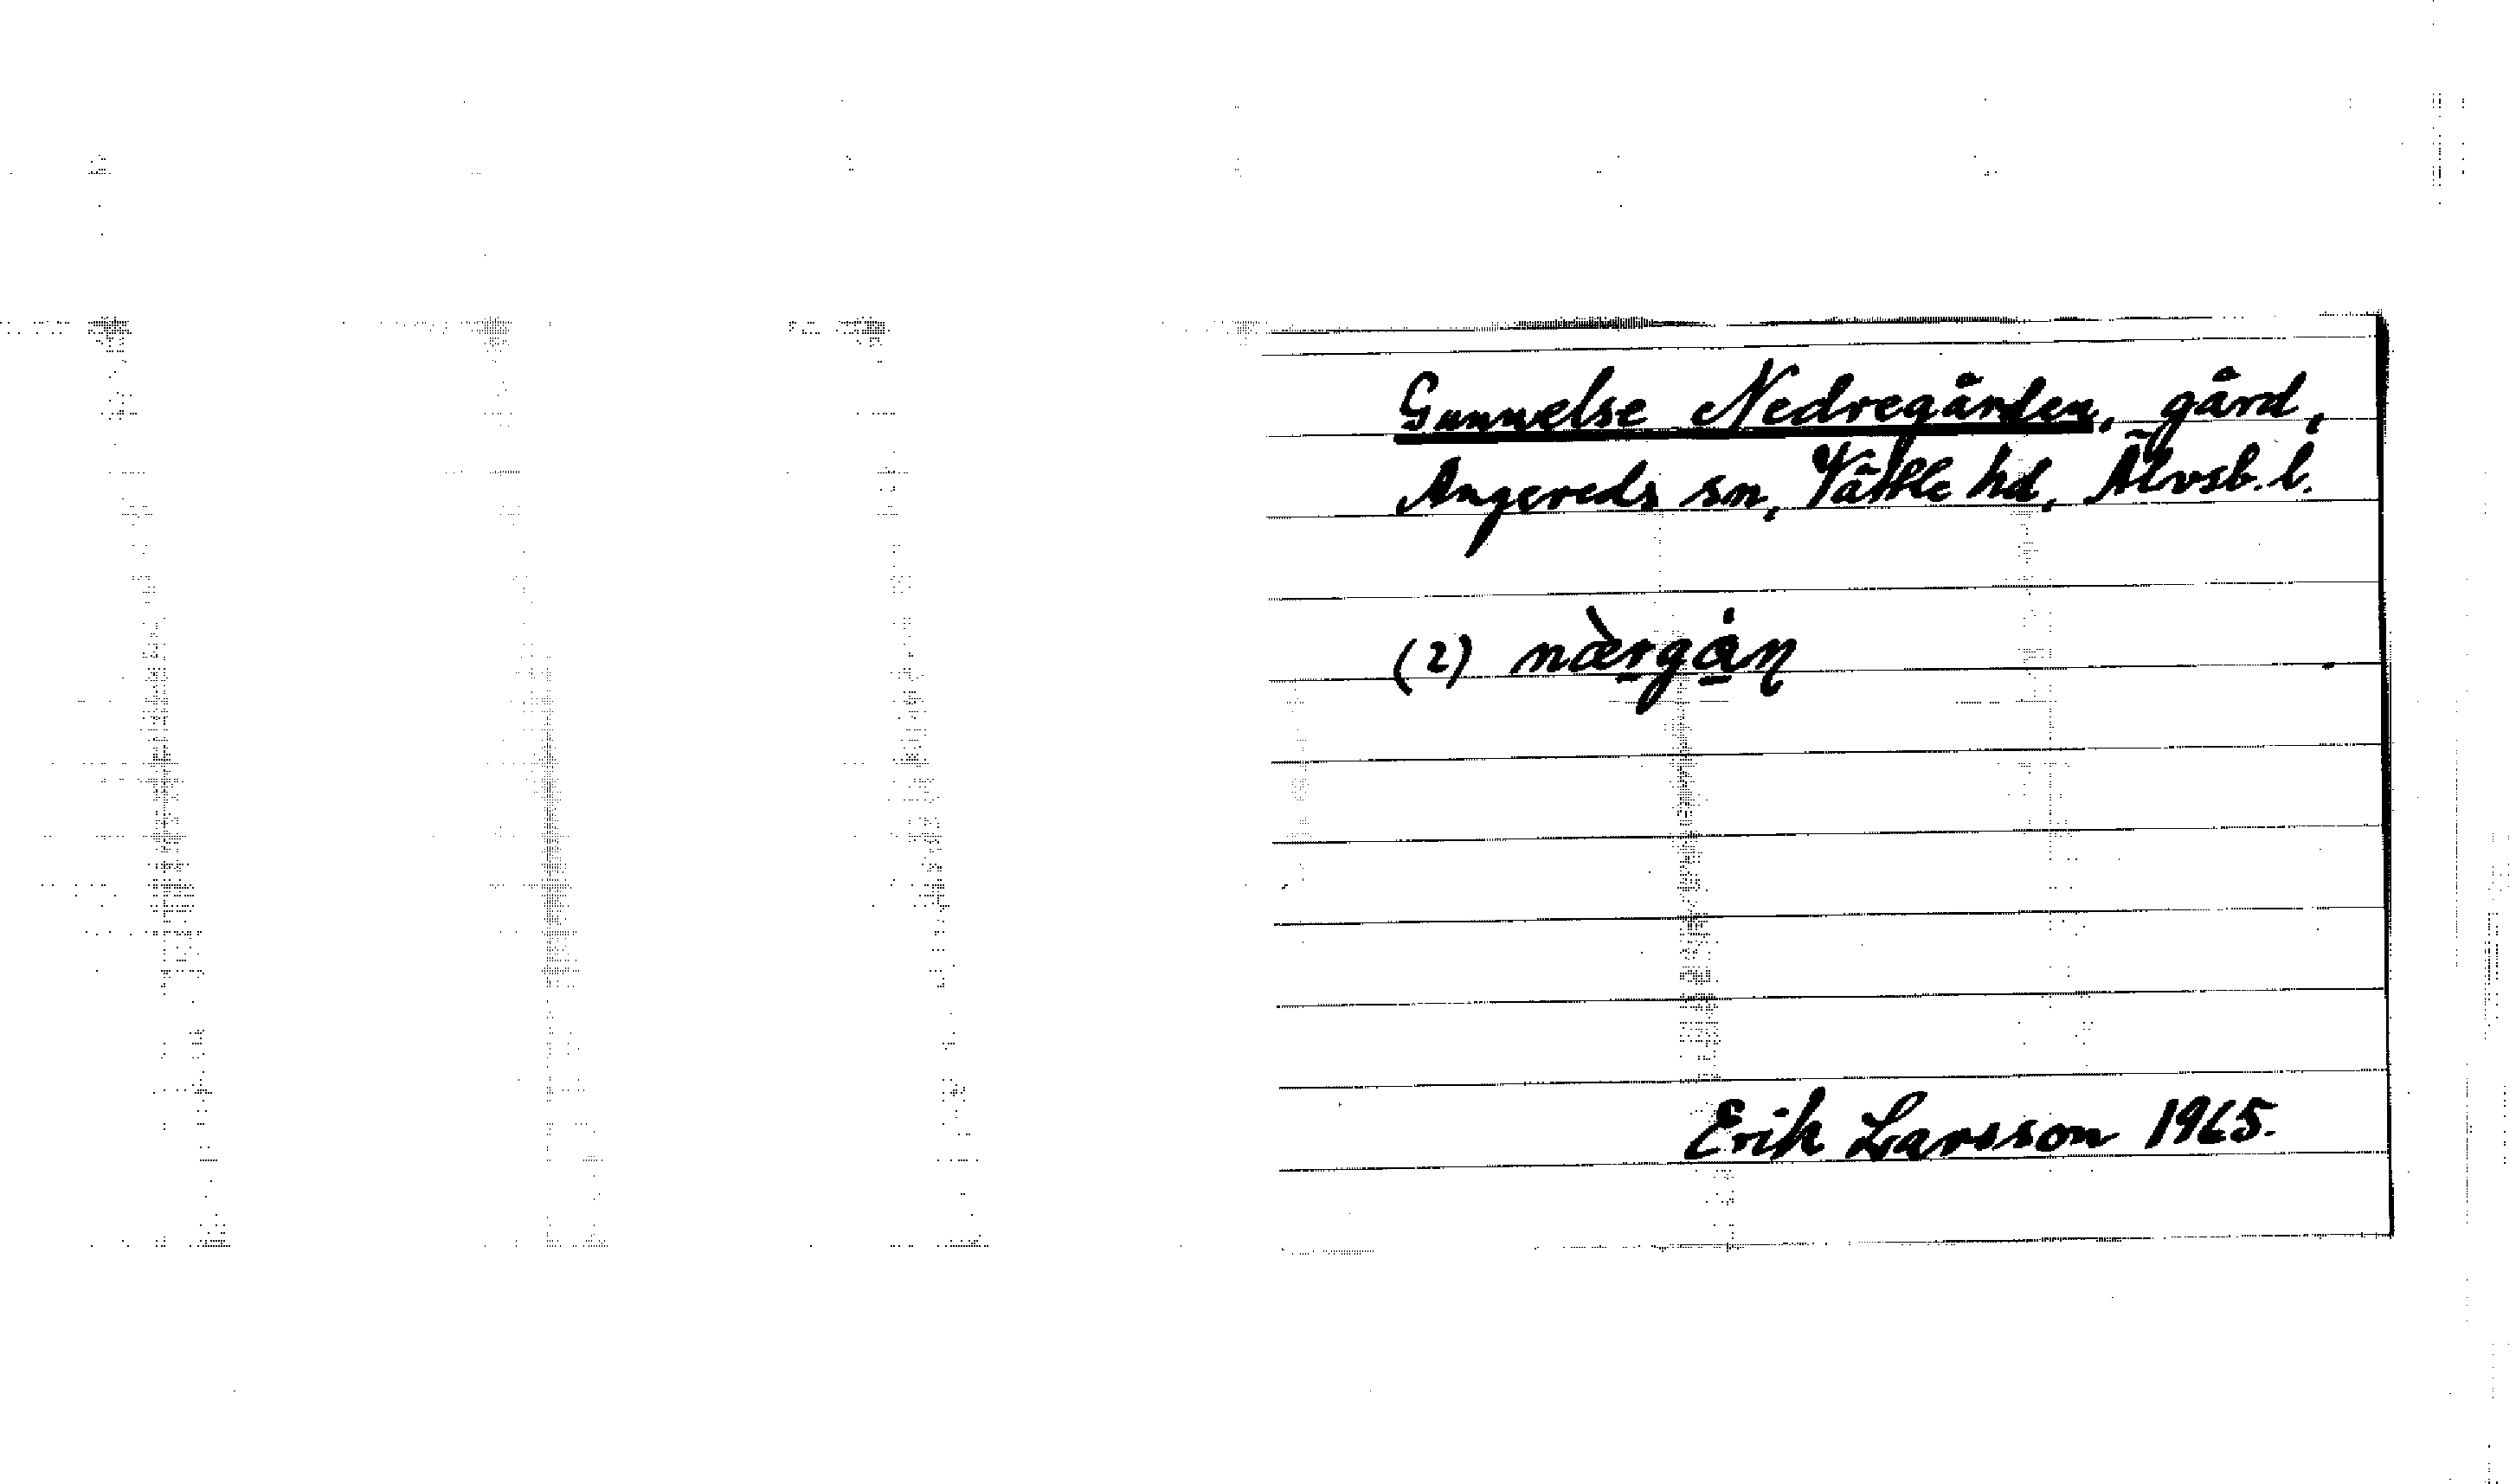 Gunnelse Nedregården, gård,
Angereds sn, Vättle hd, Älvsb. l.
(2) nærgån
Erik Larsson 1965.